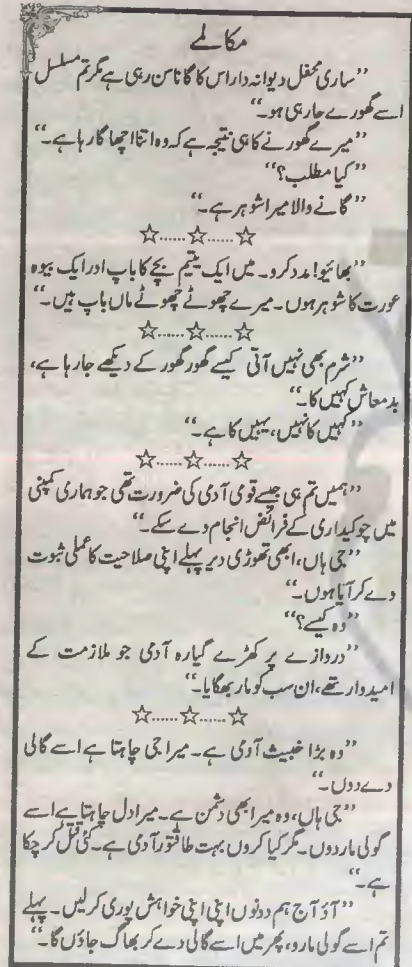 مکالمے
’’ساری محفل دیوانہ وار اس کا گانا سن رہی ہے مگر تم مسلسل
اسے گھورے جا رہی ہو۔‘‘
’’میرے گھورنے کا ہی نتیجہ ہے کہ وہ اتنا اچھا گا رہا ہے۔‘‘
’’کیا مطلب؟‘‘
’’گانے والا میرا شوہر ہے۔‘‘
☆......☆......☆
’’بھائیو! مدد کرو۔ میں ایک یتیم بچے کا باپ اور ایک بیوہ
عورت کا شوہر ہوں۔ میرے چھوٹے چھوٹے ماں باپ ہیں۔‘‘
☆......☆......☆
’’شرم بھی نہیں آتی کیسے گھور گھور کے دیکھے جا رہا ہے،
بدمعاش کہیں کا۔‘‘
’’کہیں کا نہیں، یہیں کا ہے۔‘‘
☆......☆......☆
’’ہمیں تم ہی جیسے قومی آدمی کی ضرورت تھی جو ہماری کمپنی
میں چوکیداری کے فرائض انجام دے سکے۔‘‘
’’جی ہاں، ابھی تھوڑی دیر پہلے اپنی صلاحیت کا عملی ثبوت
دے کر آیا ہوں۔‘‘
’’وہ کیسے؟‘‘
’’دروازے پر کھڑے گیارہ آدمی جو ملازمت کے
امیدوار تھے، ان سب کو مار بھگایا۔‘‘
☆......☆......☆
’’وہ بڑا خبیث آدمی ہے۔ میرا جی چاہتا ہے اسے گالی
دے دوں۔‘‘
’’جی ہاں، وہ میرا بھی دشمن ہے۔ میرا دل چاہتا ہے اسے
گولی مار دوں۔ مگر کیا کروں بہت طاقتور آدمی ہے۔ کئی قتل کر چکا
ہے۔‘‘
’’آؤ آج ہم دونوں اپنی اپنی خواہش پوری کر لیں۔ پہلے
تم اسے گولی مارو، پھر میں اسے گالی دے کر بھاگ جاؤں گا۔‘‘